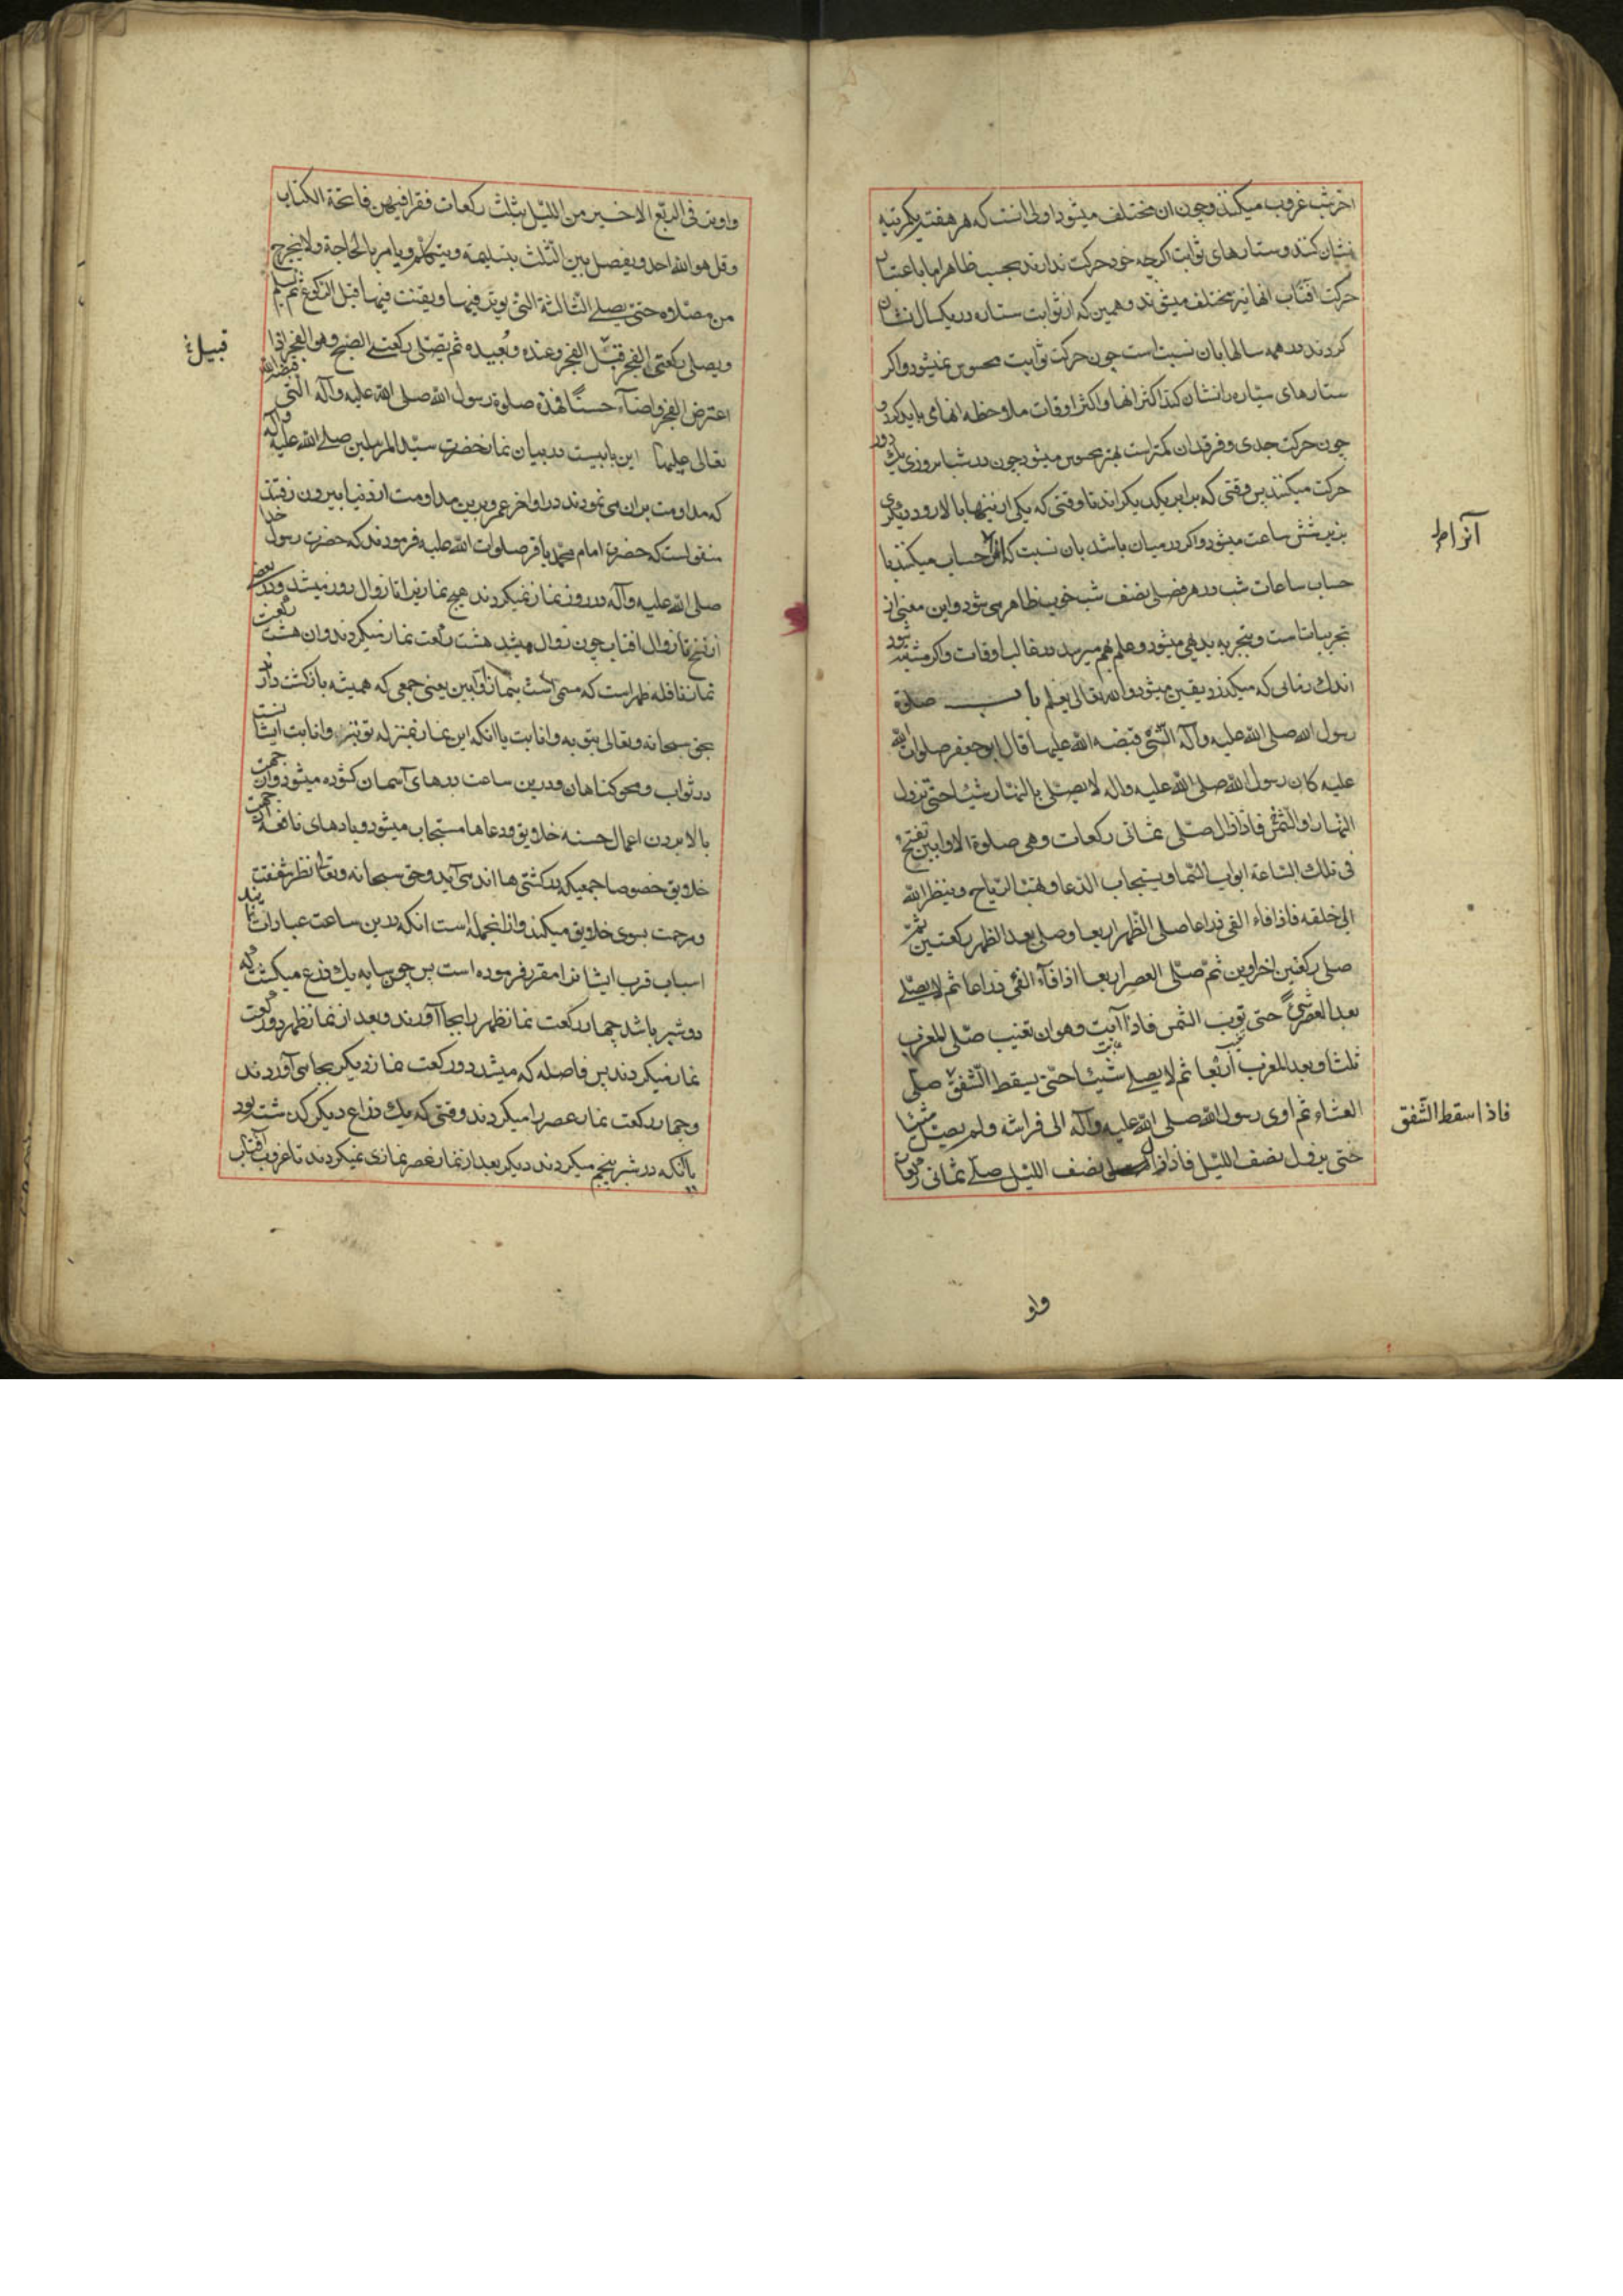 اخر شب غروب میکنند و چون ان مختلف میشود اولی انست که هر هفته یکمرتبه
نشان کنند و ستارهای ثوابت اکرچه خود حرکت ندارند بحسب ظاهر اما باعتبار
حرکت افتاب انها نیز مختلف میشوند و همین که از ثوابت ستاره در یکسال نشان
کردند در همه سالها بان نسبت است چون حرکت ثوابت محسوس نمیشود و اکر
ستارهای سیاره را نشان کند اکثر انها و اکثر اوقات ملاحظه انها می باید کرد و
چون حرکت جدی و فرقدان کمتر است بهتر محسوس میشود چون در شبانروزی یک دور
حرکت میکنند پس وقتی که برابر یکدیکراند تا وقتی که یکی از نینها بالا رود و دیکری
بزیر شش ساعت میشود و اکر در میان باشد بان نسبت که حساب میکنند با
حساب ساعات شب در هر فصلی نصف شب خوب ظاهر می شود و این معنی از
تجربیاتست و بتجربه بدیهی میشود و علم بهم میرسد در غالب اوقات و اکر مشتبه شود
اندک زمانی که میکذرد یقین میشود والله تعالی یعلم باب صلوة
رسول الله صلی الله علیه وآله التی قبضه الله علیها قال ابو جعفر صلوات الله
علیه کان رسول الله صلی الله علیه واله لا یصلی بالنهار شیئا حتی تزول
النهار والشمس فاذا زال صلی ثمانی رکعات وهی صلوة الاوابین تفتح
فی تلک الساعة ابواب السما ویستجاب الدعا وتهب الریاح وینظر الله
الی خلقه فاذا فاء الفی ذراعا صلی الظهر اربعا وصلی بعد الظهر رکعتین ثم
صلی رکعتین اخراوین ثم صلی العصر اربعا اذا فآء الفئ ذراعا ثم لا یصلی
بعد العصر شئ حتی توب الشمس فاذا آبت وهو ان تغیب صلی المغرب
ثلثا وبعد المغرب اربعا ثم لا یصلی شیئا حتی یسقط الشفق صلی
العشاء ثم اوی رسول الله صلی الله علیه وآله الی فراشه ولم یصل شیئا
حتی یزول نصف اللیل فاذا زال نصف اللیل صلی ثمانی رکعات
فاذا سقط الشفق
واو
واوتر فی الربع الاخیر من اللیل بثلث رکعات فقرا فیهن فاتحة الکتاب
وقل هو الله احد ویفصل بین الثلث بتسلیمة ویتکلم ویامر بالحاجة ولا یخرج
من مصلاه حتی یصلی الثالثة التی یوتر فیها ویقنت فیها قبل الرکوع ثم یسلم
ویصلی رکعتی الفجر قبل الفجر وعنده وبُعیده ثم یصلی رکعتی الصبح وهو الفجر اذا
اعترض الفجر واضآء حسنًا فهذه صلوة رسول الله صلی الله علیه وآله التی قبضه الله
تعالی علیها این بابیست در بیان نماز حضرت سید المرسلین صلی الله علیه وآله
که مداومت بران می نمودند در اواخر عمر و برین مداومت از دنیا بیرون رفتند
منقولست که حضرت امام محمد باقر صلوات الله علیه فرمودند که حضرت رسول خدا
صلی الله علیه وآله در روز نماز نمیکردند هیچ نمازیرا تا زوال روز میشد
تا زوال افتاب چون زوال میشد هشت رکعت نماز میکردند و ان هشت رکعت
نماز نافله ظهر است که مسمی است بنماز اوابین یعنی جمعی که همیشه بازکشت دارند
بحق سبحانه وتعالی بتوبه و انابت یا انکه این نماز بمنزله توبه و انابت ایشانست
در ثواب و محو کناهان و درین ساعت درهای آسمان کشوده میشود
بالا بردن اعمال حسنه خلایق و دعاها مستجاب میشود و بادهای نافعه
خلایق خصوصا جمعیکه در کشتی ها اند می آید و حق سبحانه وتعالی نظر شفقت
و مرحمت بسوی خلایق میکند و از انجمله است انکه درین ساعت عبادات
اسباب قرب ایشان را مقرر فرموده است پس چون سایه یک ذرع میکشت که
دو شبر باشد چهار رکعت نماز ظهر را بجا آوردند و بعد از نماز ظهر دو رکعت
نماز میکردند پس فاصله که میشد دو رکعت نماز دیکر بجا می آوردند
و چهار رکعت نماز عصر را میکردند وقتی که یک ذراع دیکر کذشته بود
یا آنکه در شبر پنجم میکردند دیکر بعد از نماز عصر نمازی نمیکردند تا غروب آفتاب